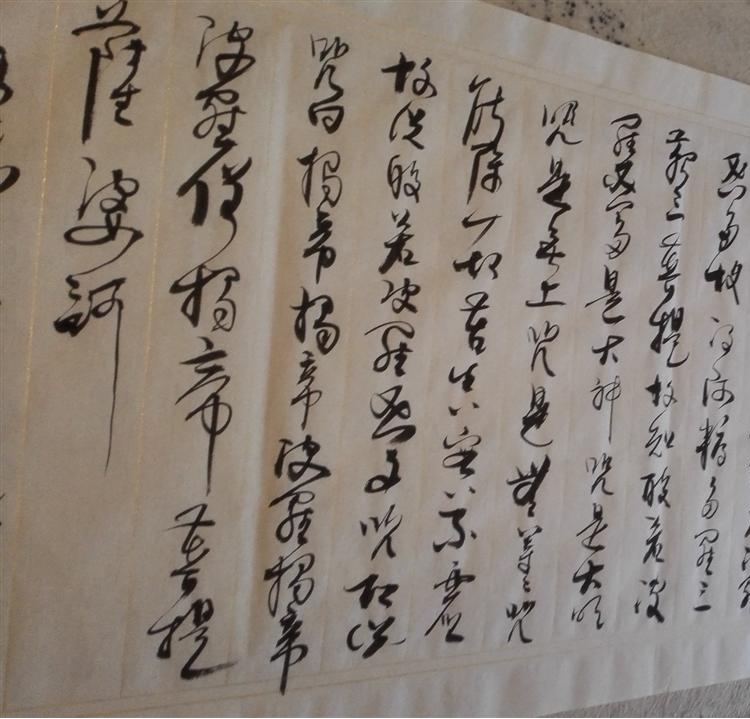 蜜多故得阿耨多羅三
藐三菩提故知般若波
羅蜜多是大神咒是大明
咒是無上咒是無等々咒
能除一切苦真實不虛
故說般若波羅蜜多咒即說
咒曰揭帝揭帝波羅揭帝
波羅僧揭帝菩提
薩婆訶